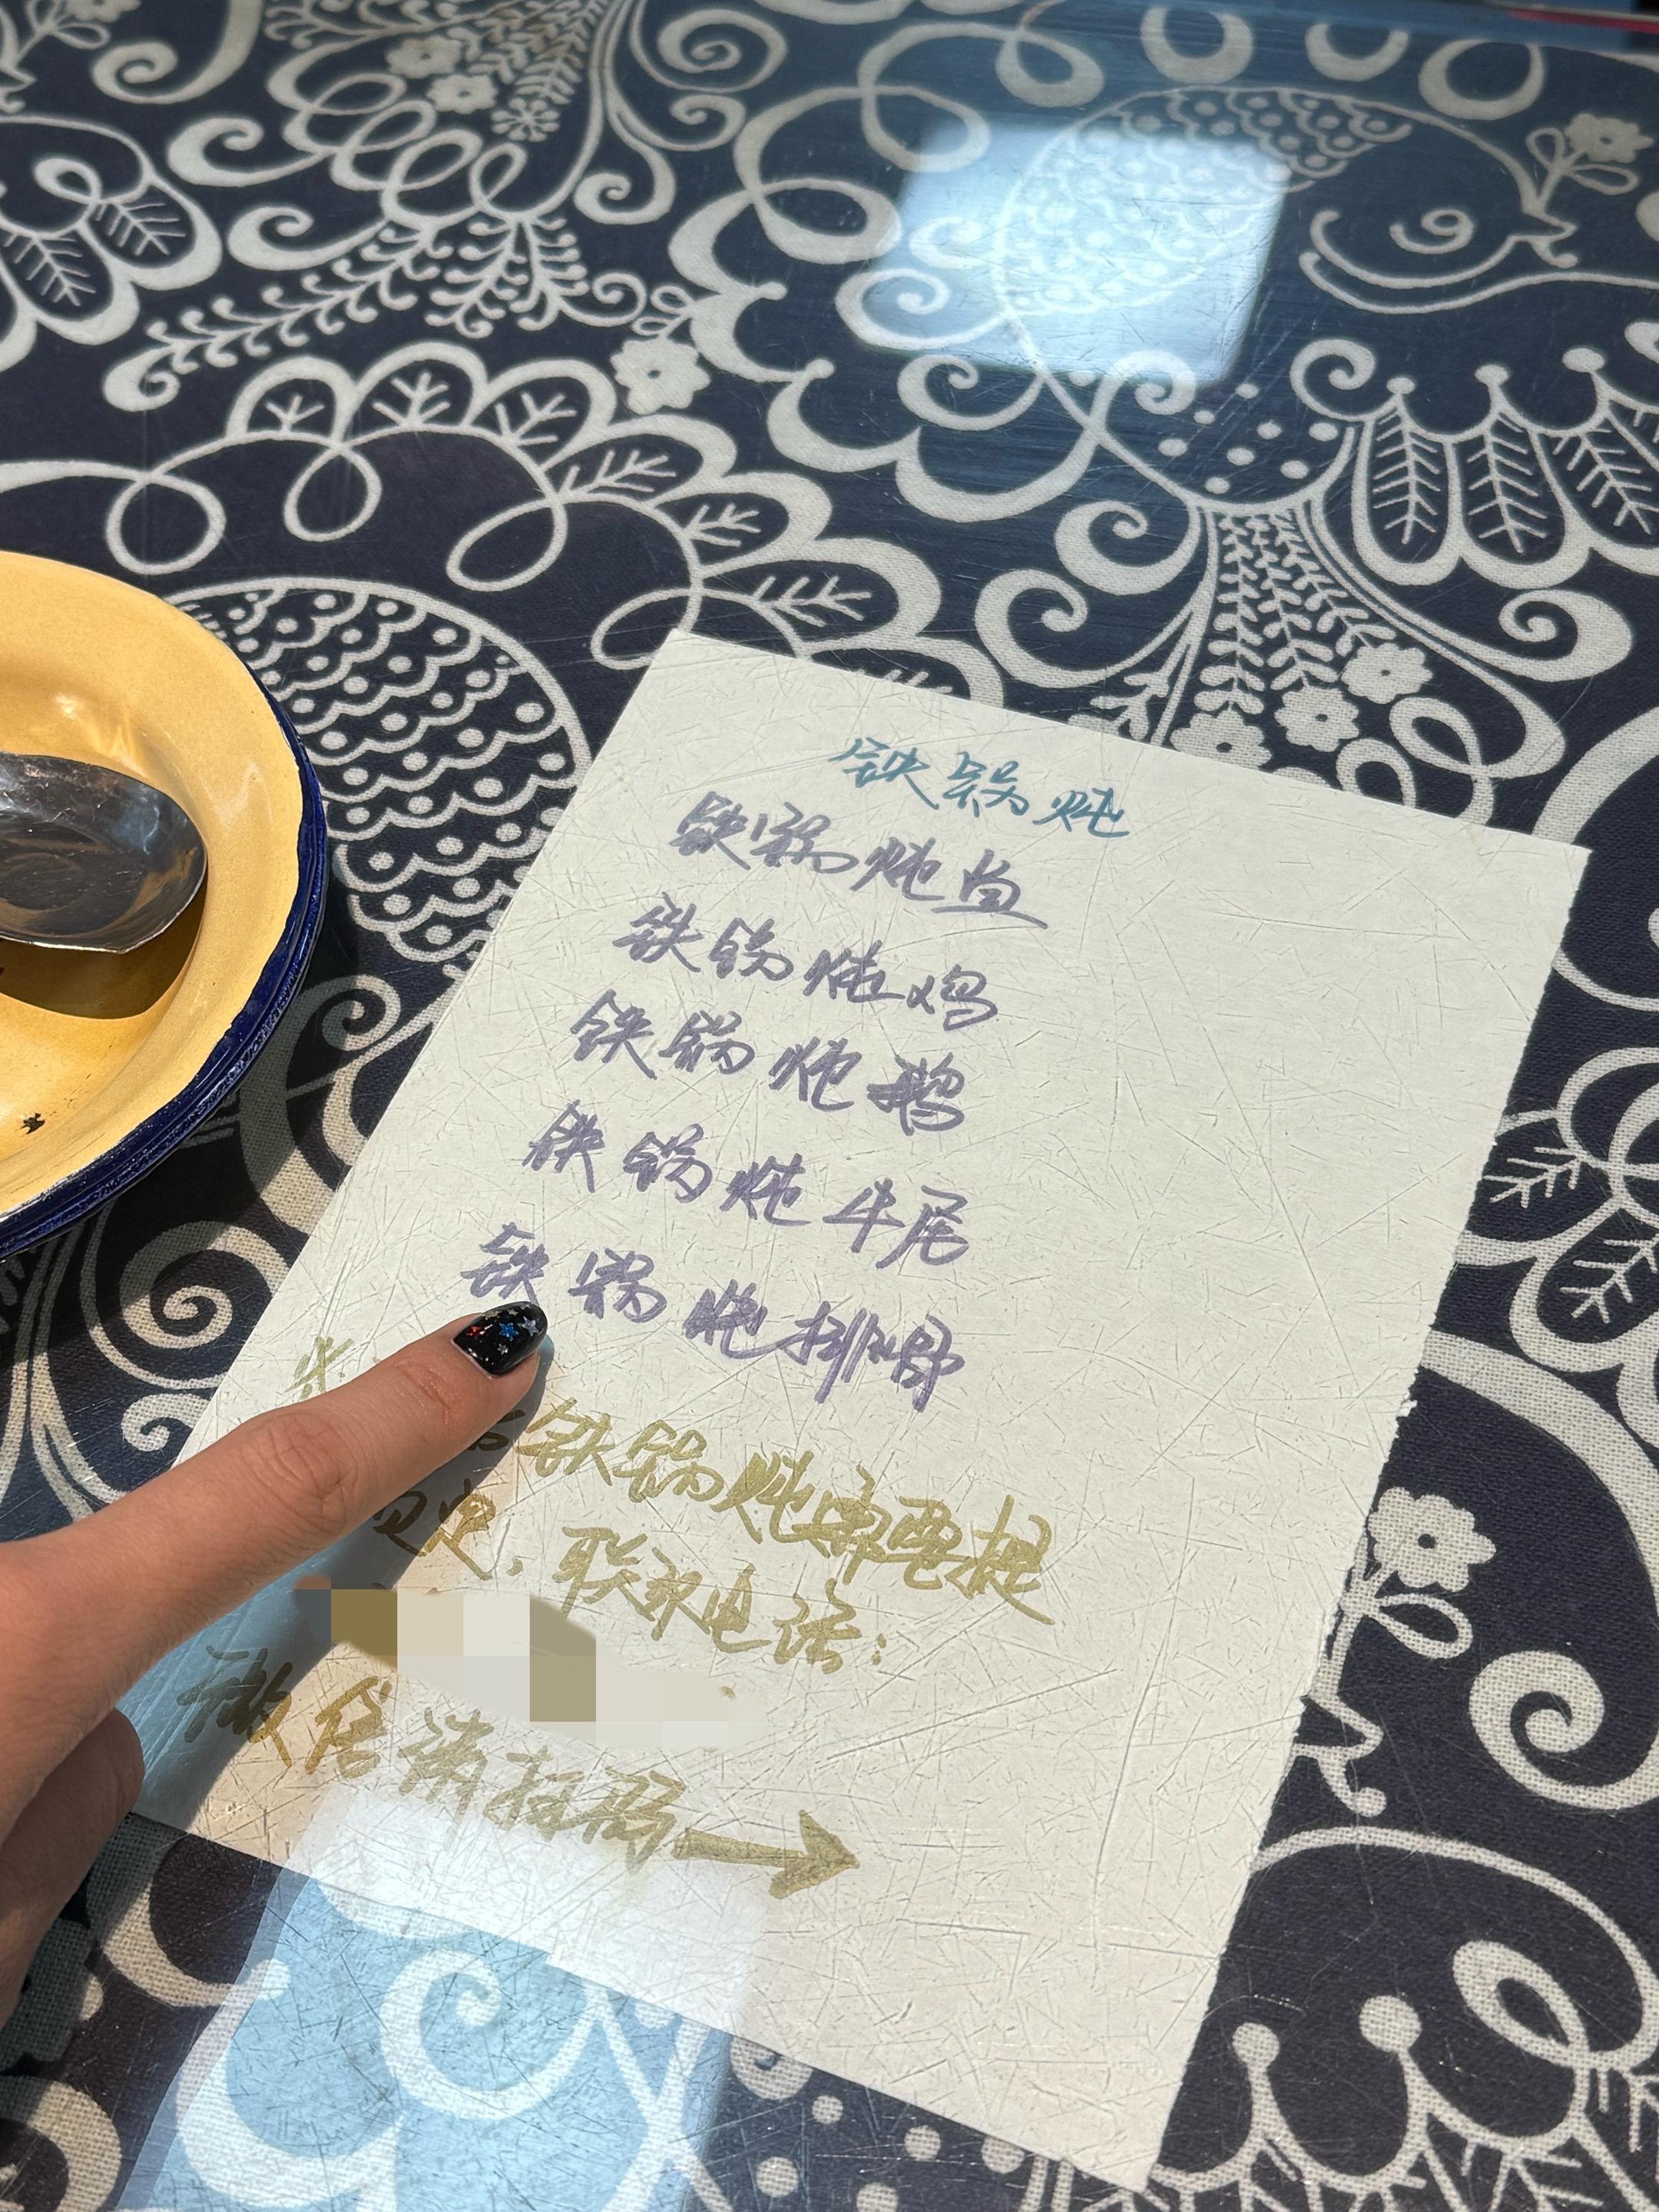 铁锅炖
铁锅炖鱼
铁锅炖鸡
铁锅炖鹅
铁锅炖牛尾
铁锅炖排骨
铁锅炖需要提
定,联系电话:
微信请扫码→